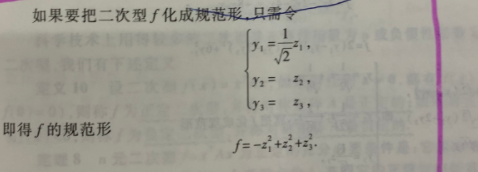 如果要把二次型f化成规范形,只需令
y₁=1/√2 z₁,
y₂= z₂,
y₃= z₃,
即得f的规范形
f=-z₁²+z₂²+z₃².